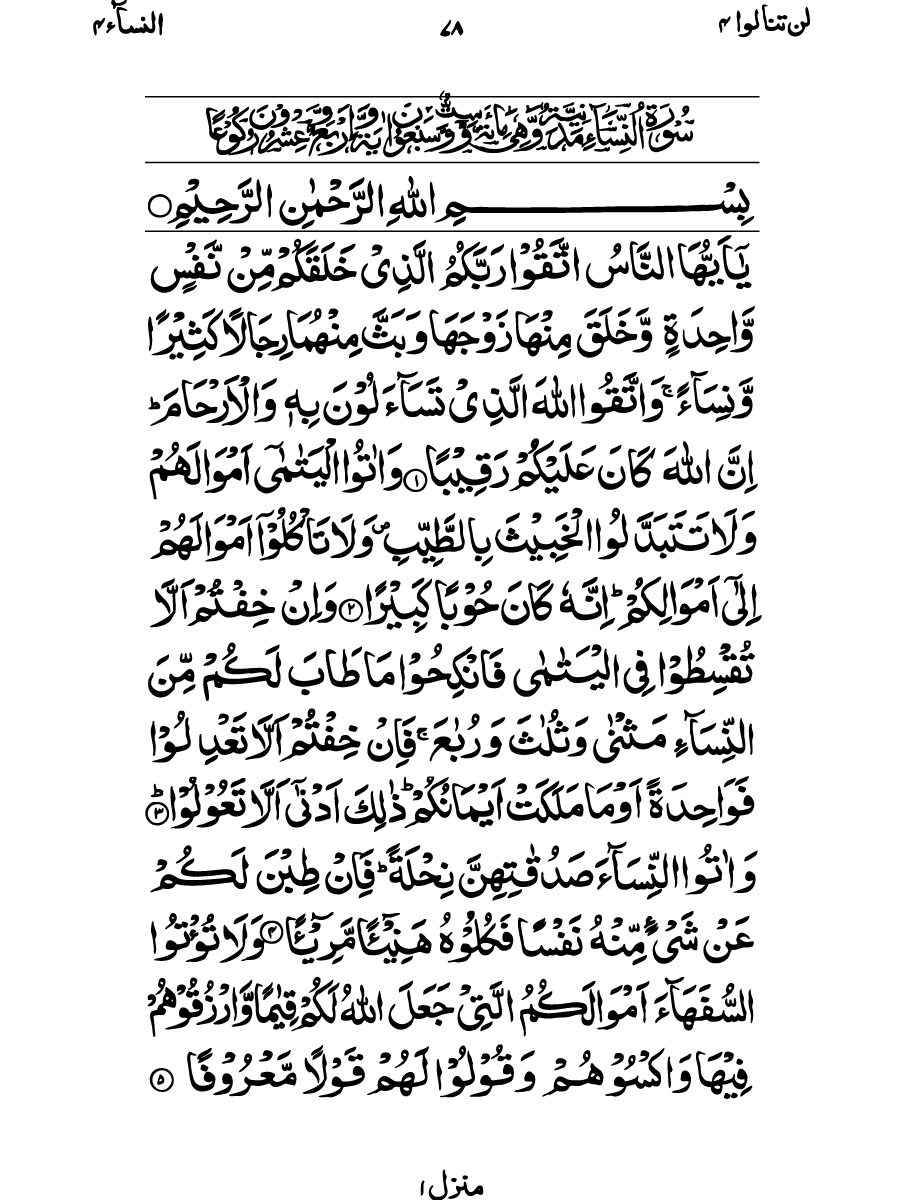 لن تنالوا ۴ ۷۸ النسآء ۴
سُوْرَةُ النِّسَآءِ مَدَنِيَّةٌ وَّهِيَ مِائَةٌ وَّسِتٌّ وَّسَبْعُوْنَ اٰيَةً وَّاَرْبَعٌ وَّعِشْرُوْنَ رُكُوْعًا
بِسْمِ اللّٰهِ الرَّحْمٰنِ الرَّحِيْمِ ○
يٰۤاَيُّهَا النَّاسُ اتَّقُوْا رَبَّكُمُ الَّذِىْ خَلَقَكُمْ مِّنْ نَّفْسٍ
وَّاحِدَةٍ وَّخَلَقَ مِنْهَا زَوْجَهَا وَبَثَّ مِنْهُمَا رِجَالًا كَثِيْرًا
وَّنِسَآءً ۚ وَاتَّقُوا اللّٰهَ الَّذِىْ تَسَآءَلُوْنَ بِهٖ وَالْاَرْحَامَ ؕ
اِنَّ اللّٰهَ كَانَ عَلَيْكُمْ رَقِيْبًا ۱ وَاٰتُوا الْيَتٰمٰٓى اَمْوَالَهُمْ
وَلَا تَتَبَدَّلُوا الْخَبِيْثَ بِالطَّيِّبِ ۪ وَلَا تَاْكُلُوْۤا اَمْوَالَهُمْ
اِلٰٓى اَمْوَالِكُمْ ؕ اِنَّهٗ كَانَ حُوْبًا كَبِيْرًا ۲ وَاِنْ خِفْتُمْ اَلَّا
تُقْسِطُوْا فِى الْيَتٰمٰى فَانْكِحُوْا مَا طَابَ لَكُمْ مِّنَ
النِّسَآءِ مَثْنٰى وَثُلٰثَ وَرُبٰعَ ۚ فَاِنْ خِفْتُمْ اَلَّا تَعْدِلُوْا
فَوَاحِدَةً اَوْ مَا مَلَكَتْ اَيْمَانُكُمْ ؕ ذٰلِكَ اَدْنٰٓى اَلَّا تَعُوْلُوْا ؕ ۳
وَاٰتُوا النِّسَآءَ صَدُقٰتِهِنَّ نِحْلَةً ؕ فَاِنْ طِبْنَ لَكُمْ
عَنْ شَىْءٍ مِّنْهُ نَفْسًا فَكُلُوْهُ هَنِيْٓـًٔا مَّرِيْٓـًٔا ۴ وَلَا تُؤْتُوا
السُّفَهَآءَ اَمْوَالَكُمُ الَّتِىْ جَعَلَ اللّٰهُ لَكُمْ قِيٰمًا وَّارْزُقُوْهُمْ
فِيْهَا وَاكْسُوْهُمْ وَقُوْلُوْا لَهُمْ قَوْلًا مَّعْرُوْفًا ۵
منزل ۱